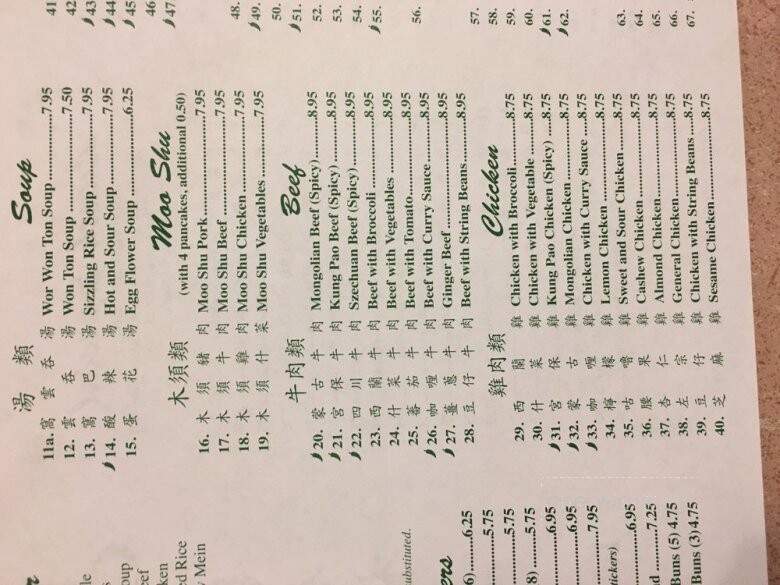 oup
eef
cken
ed Rice
y Mein
ubstituted.
ers
6) ......6.25
......5.75
......5.75
8) ......5.75
......6.95
......6.95
......7.95
tickers)
......6.95
......7.25
Buns (5) 4.75
Buns (3) 4.75
湯類 Soup
11a. 窩雲吞湯 Wor Won Ton Soup ......7.95
12. 雲吞湯 Won Ton Soup ......7.50
13. 窩巴湯 Sizzling Rice Soup ......7.95
14. 酸辣湯 Hot and Sour Soup ......7.95
15. 蛋花湯 Egg Flower Soup ......6.25
木須類 Moo Shu
(with 4 pancakes, additional 0.50)
16. 木須豬肉 Moo Shu Pork ......7.95
17. 木須牛肉 Moo Shu Beef ......7.95
18. 木須雞肉 Moo Shu Chicken ......7.95
19. 木須什菜 Moo Shu Vegetables ......7.95
牛肉類 Beef
20. 蒙古牛肉 Mongolian Beef (Spicy) ......8.95
21. 宮保牛肉 Kung Pao Beef (Spicy) ......8.95
22. 四川牛肉 Szechuan Beef (Spicy) ......8.95
23. 西蘭牛肉 Beef with Broccoli ......8.95
24. 什菜牛肉 Beef with Vegetables ......8.95
25. 蕃茄牛肉 Beef with Tomato ......8.95
26. 咖喱牛肉 Beef with Curry Sauce ......8.95
27. 薑蔥牛肉 Ginger Beef ......8.95
28. 豆仔牛肉 Beef with String Beans ......8.95
雞肉類 Chicken
29. 西蘭雞 Chicken with Broccoli ......8.75
30. 什菜雞 Chicken with Vegetable ......8.75
31. 宮保雞 Kung Pao Chicken (Spicy) ......8.75
32. 蒙古雞 Mongolian Chicken ......8.75
33. 咖喱雞 Chicken with Curry Sauce ......8.75
34. 檸檬雞 Lemon Chicken ......8.75
35. 咕嚕雞 Sweet and Sour Chicken ......8.75
36. 腰果雞 Cashew Chicken ......8.75
37. 杏仁雞 Almond Chicken ......8.75
38. 左宗雞 General Chicken ......8.75
39. 豆仔雞 Chicken with String Beans ......8.75
40. 芝麻雞 Sesame Chicken ......8.75
41
42
43
44
45
46
47
48.
49.
50.
51.
52.
53.
54.
55.
56.
57.
58.
59.
60.
61.
62.
63.
64.
65.
66.
67.